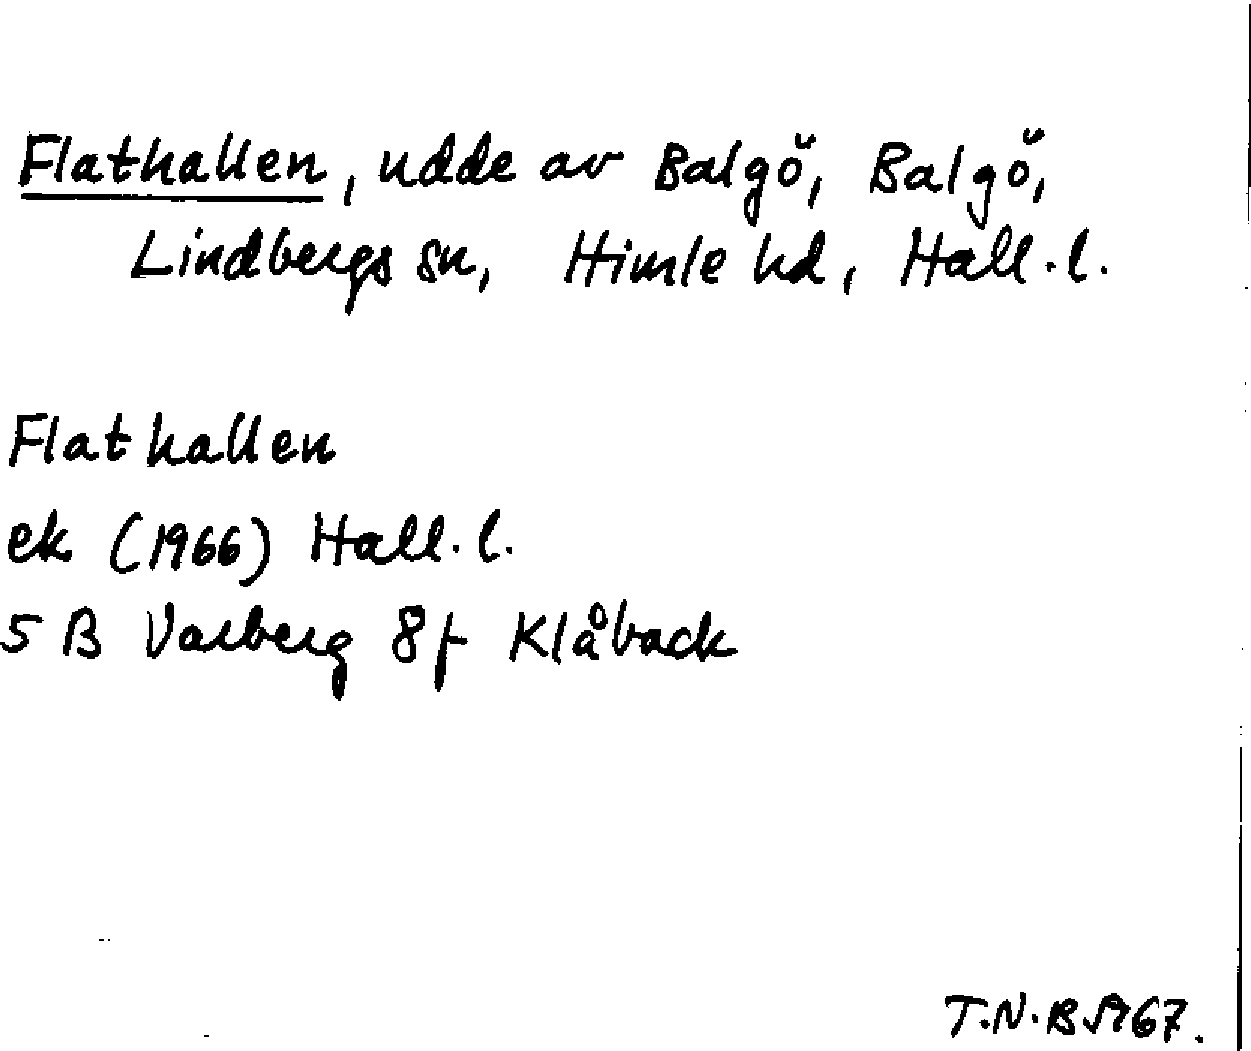 Flathallen, udde av Balgö, Balgö,
Lindbergs sn, Himle hd, Hall.l.
Flathallen
ek (1966) Hall.l.
5 B Varberg 8f Klåback
T.N.B. 1967.